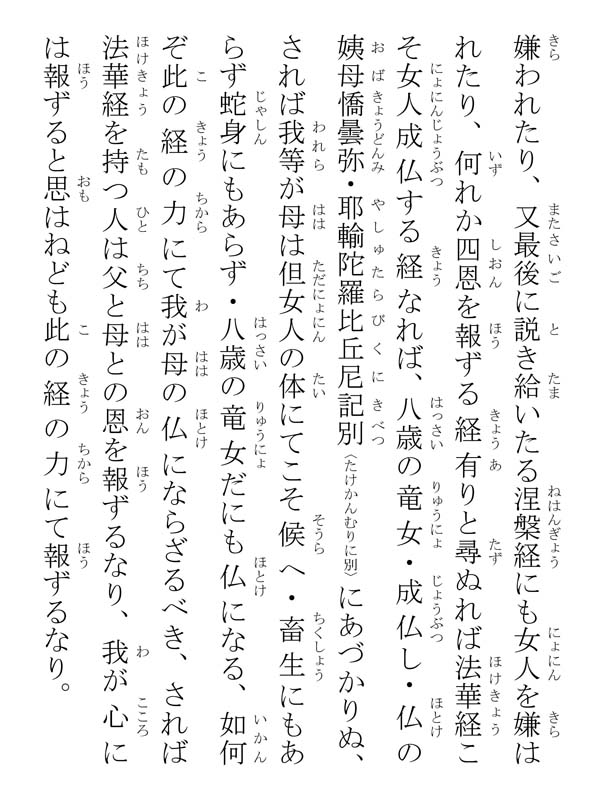 嫌われたり、又最後に説き給いたる涅槃経にも女人を嫌は
れたり、何れか四恩を報ずる経有りと尋ぬれば法華経こ
そ女人成仏する経なれば、八歳の竜女・成仏し・仏の
姨母憍曇弥・耶輸陀羅比丘尼記別(たけかんむりに別)にあづかりぬ、
されば我等が母は但女人の体にてこそ候へ・畜生にもあ
らず蛇身にもあらず・八歳の竜女だにも仏になる、如何
ぞ此の経の力にて我が母の仏にならざるべき、されば
法華経を持つ人は父と母との恩を報ずるなり、我が心に
は報ずると思はねども此の経の力にて報ずるなり。